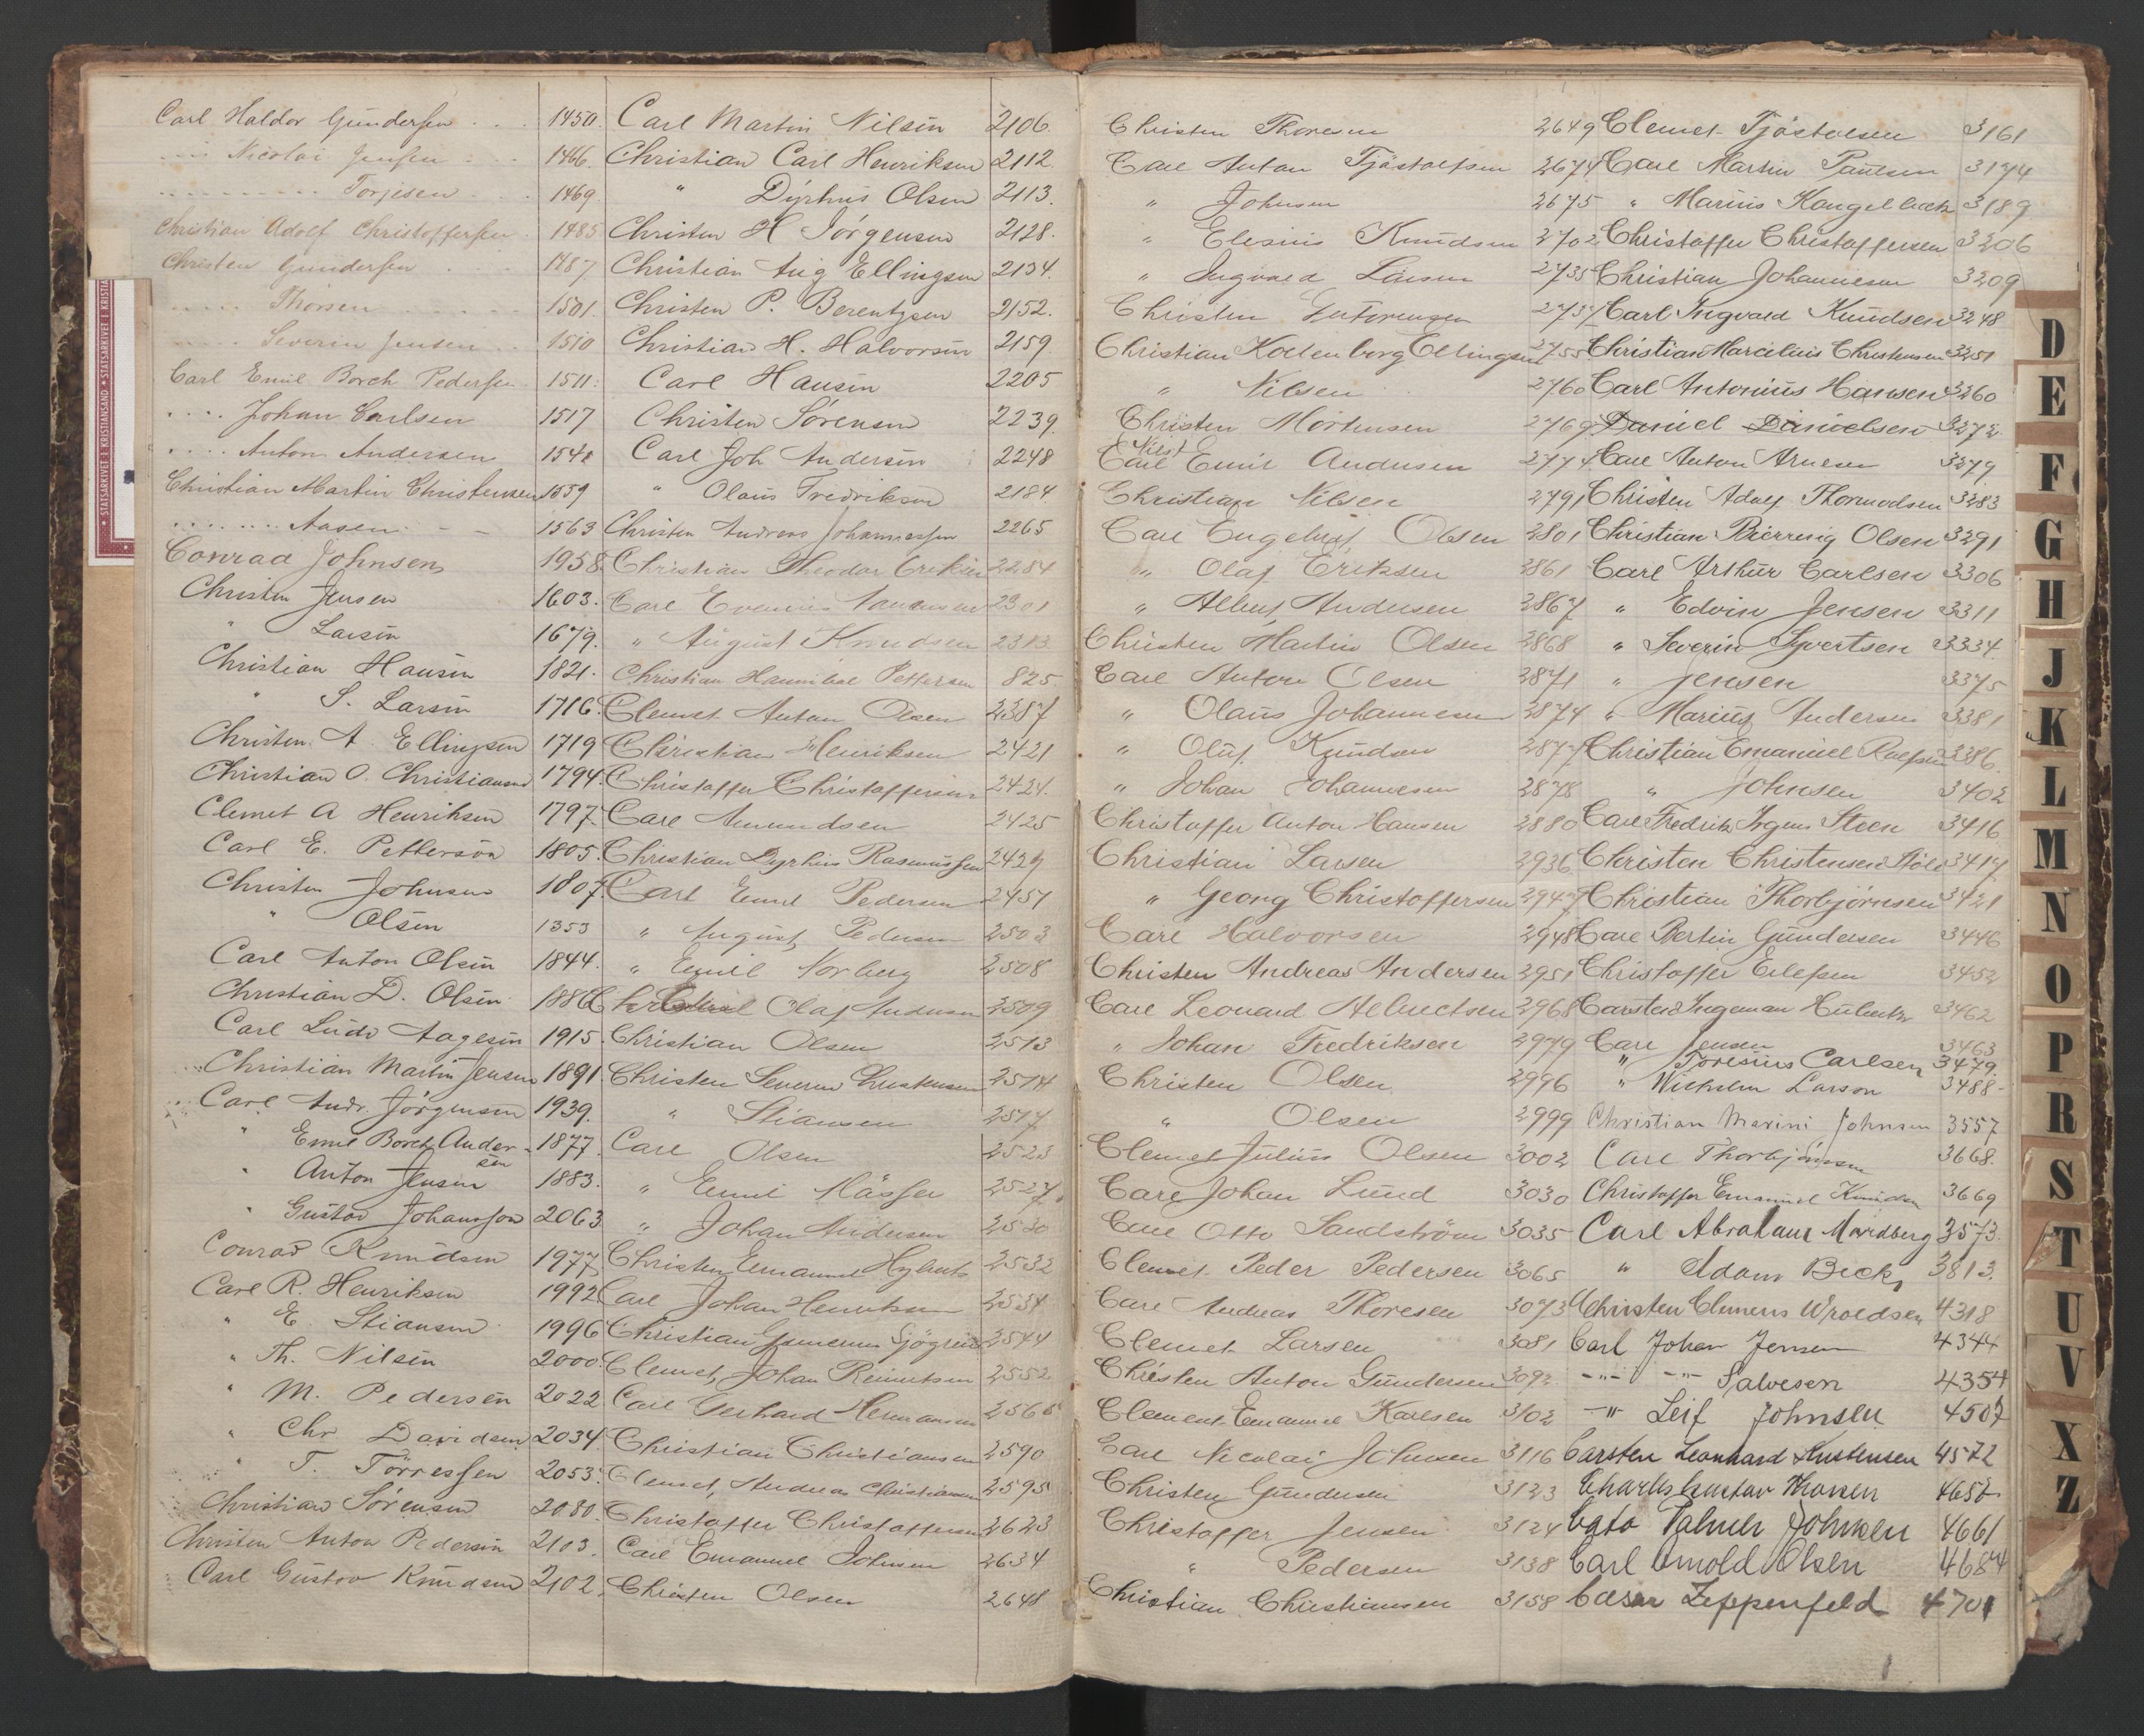 Carl Haldor Gundersen . . . 1450.
" Nicolai Jensen . . . 1466.
. . . . . . . . Torjesen . . . 1469.
Christian Adolf Christoffersen . 1485
Christen Gundersen . . . 1487.
. . . . . Thorsen . . . . . . 1501.
. . . . . Severin Jensen . . 1510
Carl Emil Borch Pedersen . 1511.
. . . . Johan Carlsen 1517
. . . . Anton Andersen 1548
Christian Martin Christensen 1559
. . . . . . . Aasen 1563
Conrad Johnsen 1958
Christen Jensen 1603.
" Larsen 1679.
Christian Hansen 1821.
" S. Larsen 1716.
Christen A. Ellingsen 1719
Christian O. Christiansen 1794.
Clemet A Henriksen 1797.
Carl E. Petterson 1805.
Christen Johnsen 1807
" Olsen 1353
Carl Anton Olsen 1844.
Christian D. Olsen 1886
Carl Ludv Aagesen 1915.
Christian Martin Jensen 1891
Carl Andr. Jörgensen 1939.
" Emil Borch Andersen 1877.
" Anton Jensen 1883.
" Gustav Johansson 2063
Conrad Knudsen 1977
Carl R. Henriksen 1992
" E. Stiansen 1996
" Th. Nilsen 2000.
" M. Pedersen 2022
" Chr Davidsen 2034
" T. Törressen 2053.
Christian Sörensen 2080.
Christen Anton Pedersen 2103.
Carl Gustav Knudsen 2102.
Carl Martin Nilsen 2106.
Christian Carl Henriksen 2112.
" Dyrhus Olsen 2113.
Christen H Jörgensen 2128.
Christian Aug Ellingsen 2134.
Christen P. Berentzen 2152.
Christian H. Halvorsen 2159
Carl Hansen 2205
Christen Sörensen 2239
Carl Joh Andersen 2248
" Olaus Fredriksen 2184
Christen Andreas Johannessen 2265
Christian Theodor Eriksen 2284
Carl 2301
" August Knudsen 2313
Christian Hannibal Pettersen 825.
Clemet Anton Olsen 2387
Christian Henriksen 2421
Christoffer Christoffersen 2424.
Carl Amundsen 2425
Christian Dyrhus Rasmussen 2429
Carl Emil Pedersen 2457
" August Pedersen 2503
" Emil Norberg 2508
Olaf Andersen 2509
Christian Olsen 2513
Christen Severin Christensen 2514
" Stiansen 2517
Carl Olsen 2523
" Emil 2527
" Johan Andersen 2530
Christen Emanuel 2532
Carl Johan Henriksen 2534
Christian Sjögren 2544
Clemet Johan Reinertsen 2552
Carl Gerhard Hermansen 2565
Christian Christiansen 2590
Clemet Andreas Christiansen 2595
Christoffer Christoffersen 2623
Carl Emanuel Johnsen 2634
Christen Olsen 2648
Christen Thorsen 2649
Carl Anton Tjöstolfsen 2674
" Johnsen 2675
" Elesius Knudsen 2702
" Ingvald Larsen 2735
Christen Guttormsen 2737
Christian Kollenborg Ellingsen 2755
" Nilsen 2760
Christen Mortensen 2769
Carl Emil Andersen 2774
Christian Nilsen 2791
Carl Engebret Olsen 2801
" Olaf Eriksen 2861
" Albert Andersen 2867
Christen Martin Olsen 2868
Carl Anton Olsen 2871
" Olaus Johannesen 2874
" Oluf Knudsen 2877
" Johan Johannesen 2878
Christoffer Anton Hansen 2880
Christian Larsen 2936
" Georg Christoffersen 2947
Carl Halvorsen 2948
Christen Andreas Andersen 2951
Carl Leonard Albrectsen 2968
" Johan Fredriksen 2979
Christen Olsen 2996
" Olsen 2999
Clemet Julius Olsen 3002
Carl Johan Lund 3030
Carl Otto Sandström 3035
Clemet Peder Pedersen 3065
Carl Andreas Thoresen 3073
Clemet Larsen 3081
Christen Anton Gundersen 3092
Clement Emanuel Karlsen 3102
Carl Nicolai Johnsen 3116
Christen Gundersen 3123
Christoffer Jensen 3124
" Pedersen 3138
Christian Christiansen 3158
Clemet Tjöstolsen 3161
Carl Martin Paulsen 3174
" Marius Kongelbeck 3189
Christoffer Christoffersen 3206
Christian Johannesen 3209
Carl Ingvald Knudsen 3248
Christian Marcelius Christensen 3251
Carl Antonius Hansen 3260
Daniel Danielsen 3272
Carl Anton Arnesen 3279
Christen Adolf Thormodsen 3283
Christian Bierring Olsen 3291
Carl Arthur Carlsen 3306
" Edvin Jensen 3311
" Severin Syvertsen 3334.
" Jensen 3375
" Marius Andersen 3381
Christian Emanuel 3386.
" Johnsen 3402
Carl Fredrik Irgens Steen 3416
Christen Christensen 3417
Christian Thorbjörnsen 3421
Carl Bertin Gundersen 3446
Christoffer Eilefsen 3452
Carsten Ingeman 3462
Carl Jensen 3463
" Toresius Carlsen 3479.
" Wilhelm Larson 3488
Christian Marini Johnsen 3557
Carl Thorbjörnsen 3668.
Christoffer Emanuel Knudsen 3669
Carl Abraham Mardberg 3573.
" Adam Beck 3813.
Christen Clemens Wroldsen 4318
Carl Johan Jensen 4344
-"- -"- Salvesen 4354
-"- Leif Johnsen 4507
Carsten Leonhard Kristensen 4572
Charles Gustav Hansen 4652
Cato Palmer Johnsen 4661
Carl Arnold Olsen 4684
Cæsar Zeppenfeld 4701
D
E
F
G
H
J
K
L
M
N
O
P
R
S
T
U
V
X
Z
• STATSARKIVET I KRISTIANSAND • STATSARKIVET I KRISTIA